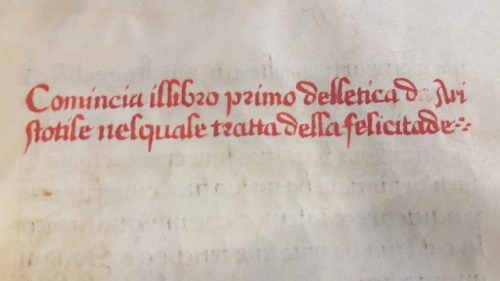 Comincia illibro primo delletica d Ari
stotile nelquale tratta della felicitade